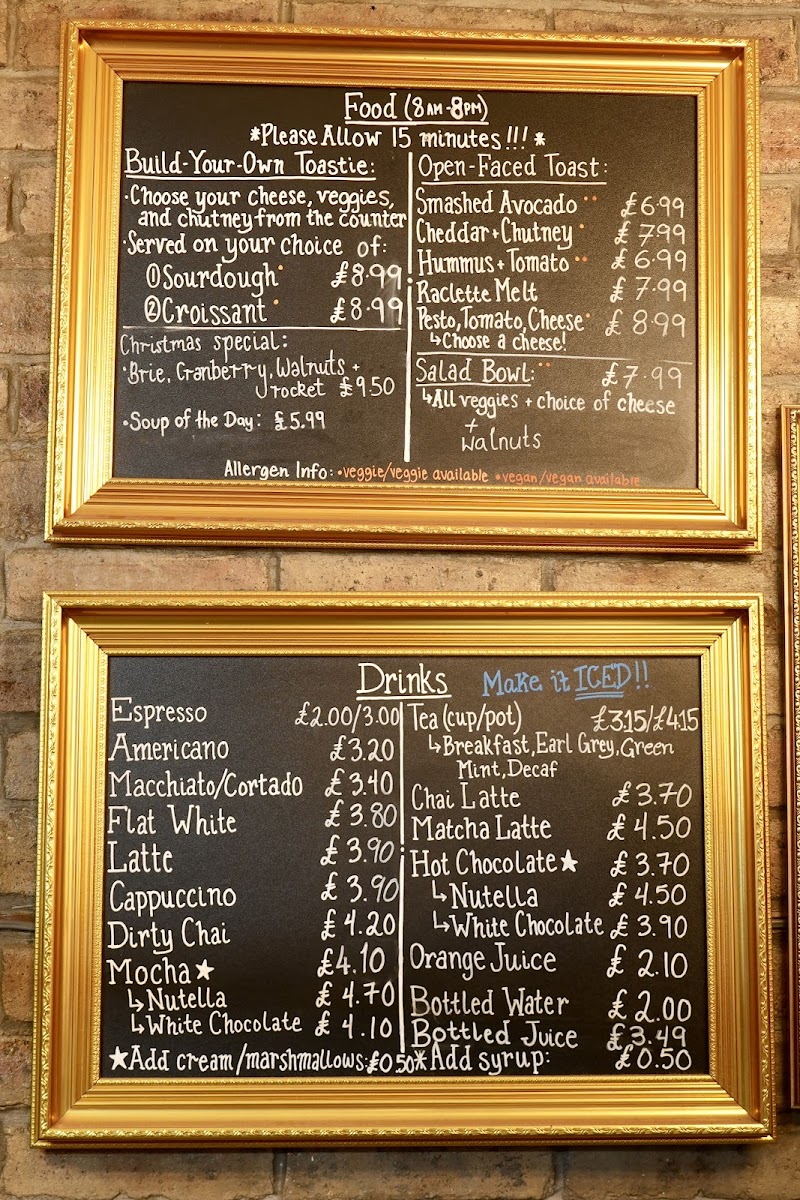 Food (8AM-8PM)
*Please Allow 15 minutes!!!*
Build-Your-Own Toastie:
•Choose your cheese, veggies,
and chutney from the counter
•Served on your choice of:
①Sourdough• £8.99
②Croissant• £8.99
Christmas special:
•Brie, Cranberry, Walnuts +
rocket £9.50
•Soup of the Day: £5.99
Open-Faced Toast:
Smashed Avocado•• £6.99
Cheddar+Chutney• £7.99
Hummus+Tomato•• £6.99
Raclette Melt £7.99
Pesto, Tomato, Cheese• £8.99
↳Choose a cheese!
Salad Bowl:•• £7.99
↳All veggies + choice of cheese
+
walnuts
Allergen Info: •veggie/veggie available •vegan/vegan available
Drinks Make it ICED!!
Espresso £2.00/3.00
Americano £3.20
Macchiato/Cortado £3.40
Flat White £3.80
Latte £3.90
Cappuccino £3.90
Dirty Chai £4.20
Mocha★ £4.10
↳Nutella £4.70
↳White Chocolate £4.10
Tea (cup/pot) £3.15/£4.15
↳Breakfast, Earl Grey, Green
Mint, Decaf
Chai Latte £3.70
Matcha Latte £4.50
Hot Chocolate★ £3.70
↳Nutella £4.50
↳White Chocolate £3.90
Orange Juice £2.10
Bottled Water £2.00
Bottled Juice £3.49
★Add cream/marshmallows: £0.50 *Add syrup: £0.50